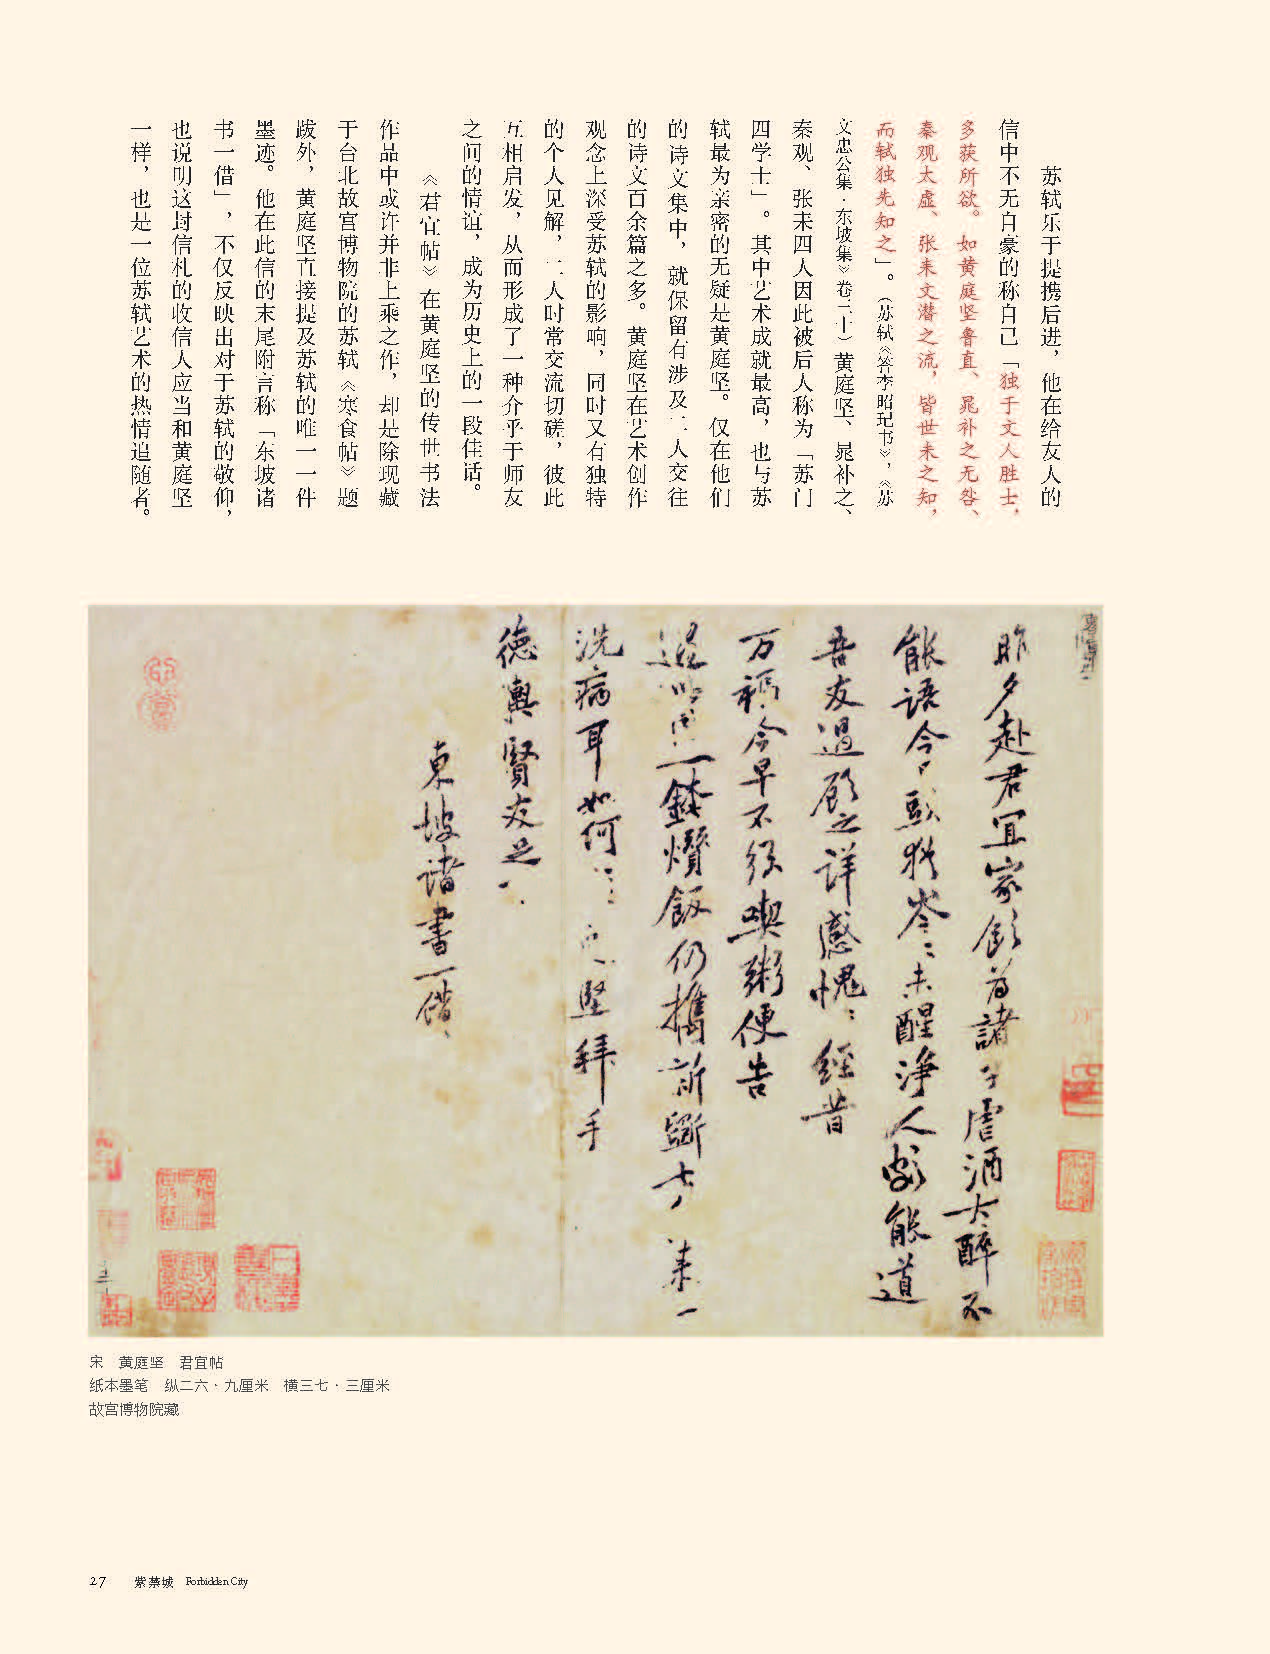 苏轼乐于提携后进，他在给友人的
信中不无自豪的称自己「独于文人胜士，
多获所欲。如黄庭坚鲁直、晁补之无咎、
秦观太虚、张耒文潜之流，皆世未之知，
而轼独先知之」。（苏轼《答李昭玘书》，《苏
文忠公集·东坡集》卷三十）黄庭坚、晁补之、
秦观、张耒四人因此被后人称为「苏门
四学士」。其中艺术成就最高，也与苏
轼最为亲密的无疑是黄庭坚。仅在他们
的诗文集中，就保留有涉及二人交往
的诗文百余篇之多。黄庭坚在艺术创作
观念上深受苏轼的影响，同时又有独特
的个人见解，二人时常交流切磋，彼此
互相启发，从而形成了一种介乎于师友
之间的情谊，成为历史上的一段佳话。
《君宜帖》在黄庭坚的传世书法
作品中或许并非上乘之作，却是除现藏
于台北故宫博物院的苏轼《寒食帖》题
跋外，黄庭坚直接提及苏轼的唯一一件
墨迹。他在此信的末尾附言称「东坡诸
书一借」，不仅反映出对于苏轼的敬仰，
也说明这封信札的收信人应当和黄庭坚
一样，也是一位苏轼艺术的热情追随者。
昨夕赴君宜家飲為諸子虐酒大醉不
能語今日頭猶岑〻未醒淨人劣能道
吾友過顧之詳感愧〻經昔
万福今早不復喫粥便告
一鉢饡飯仍攜新斸 来一
洗病耳如何〻〻 堅拜手
德輿賢友足
東坡諸書一借〻
宋 黄庭坚 君宜帖
纸本墨笔 纵二六·九厘米 横三七·三厘米
故宫博物院藏
27 紫禁城 Forbidden City